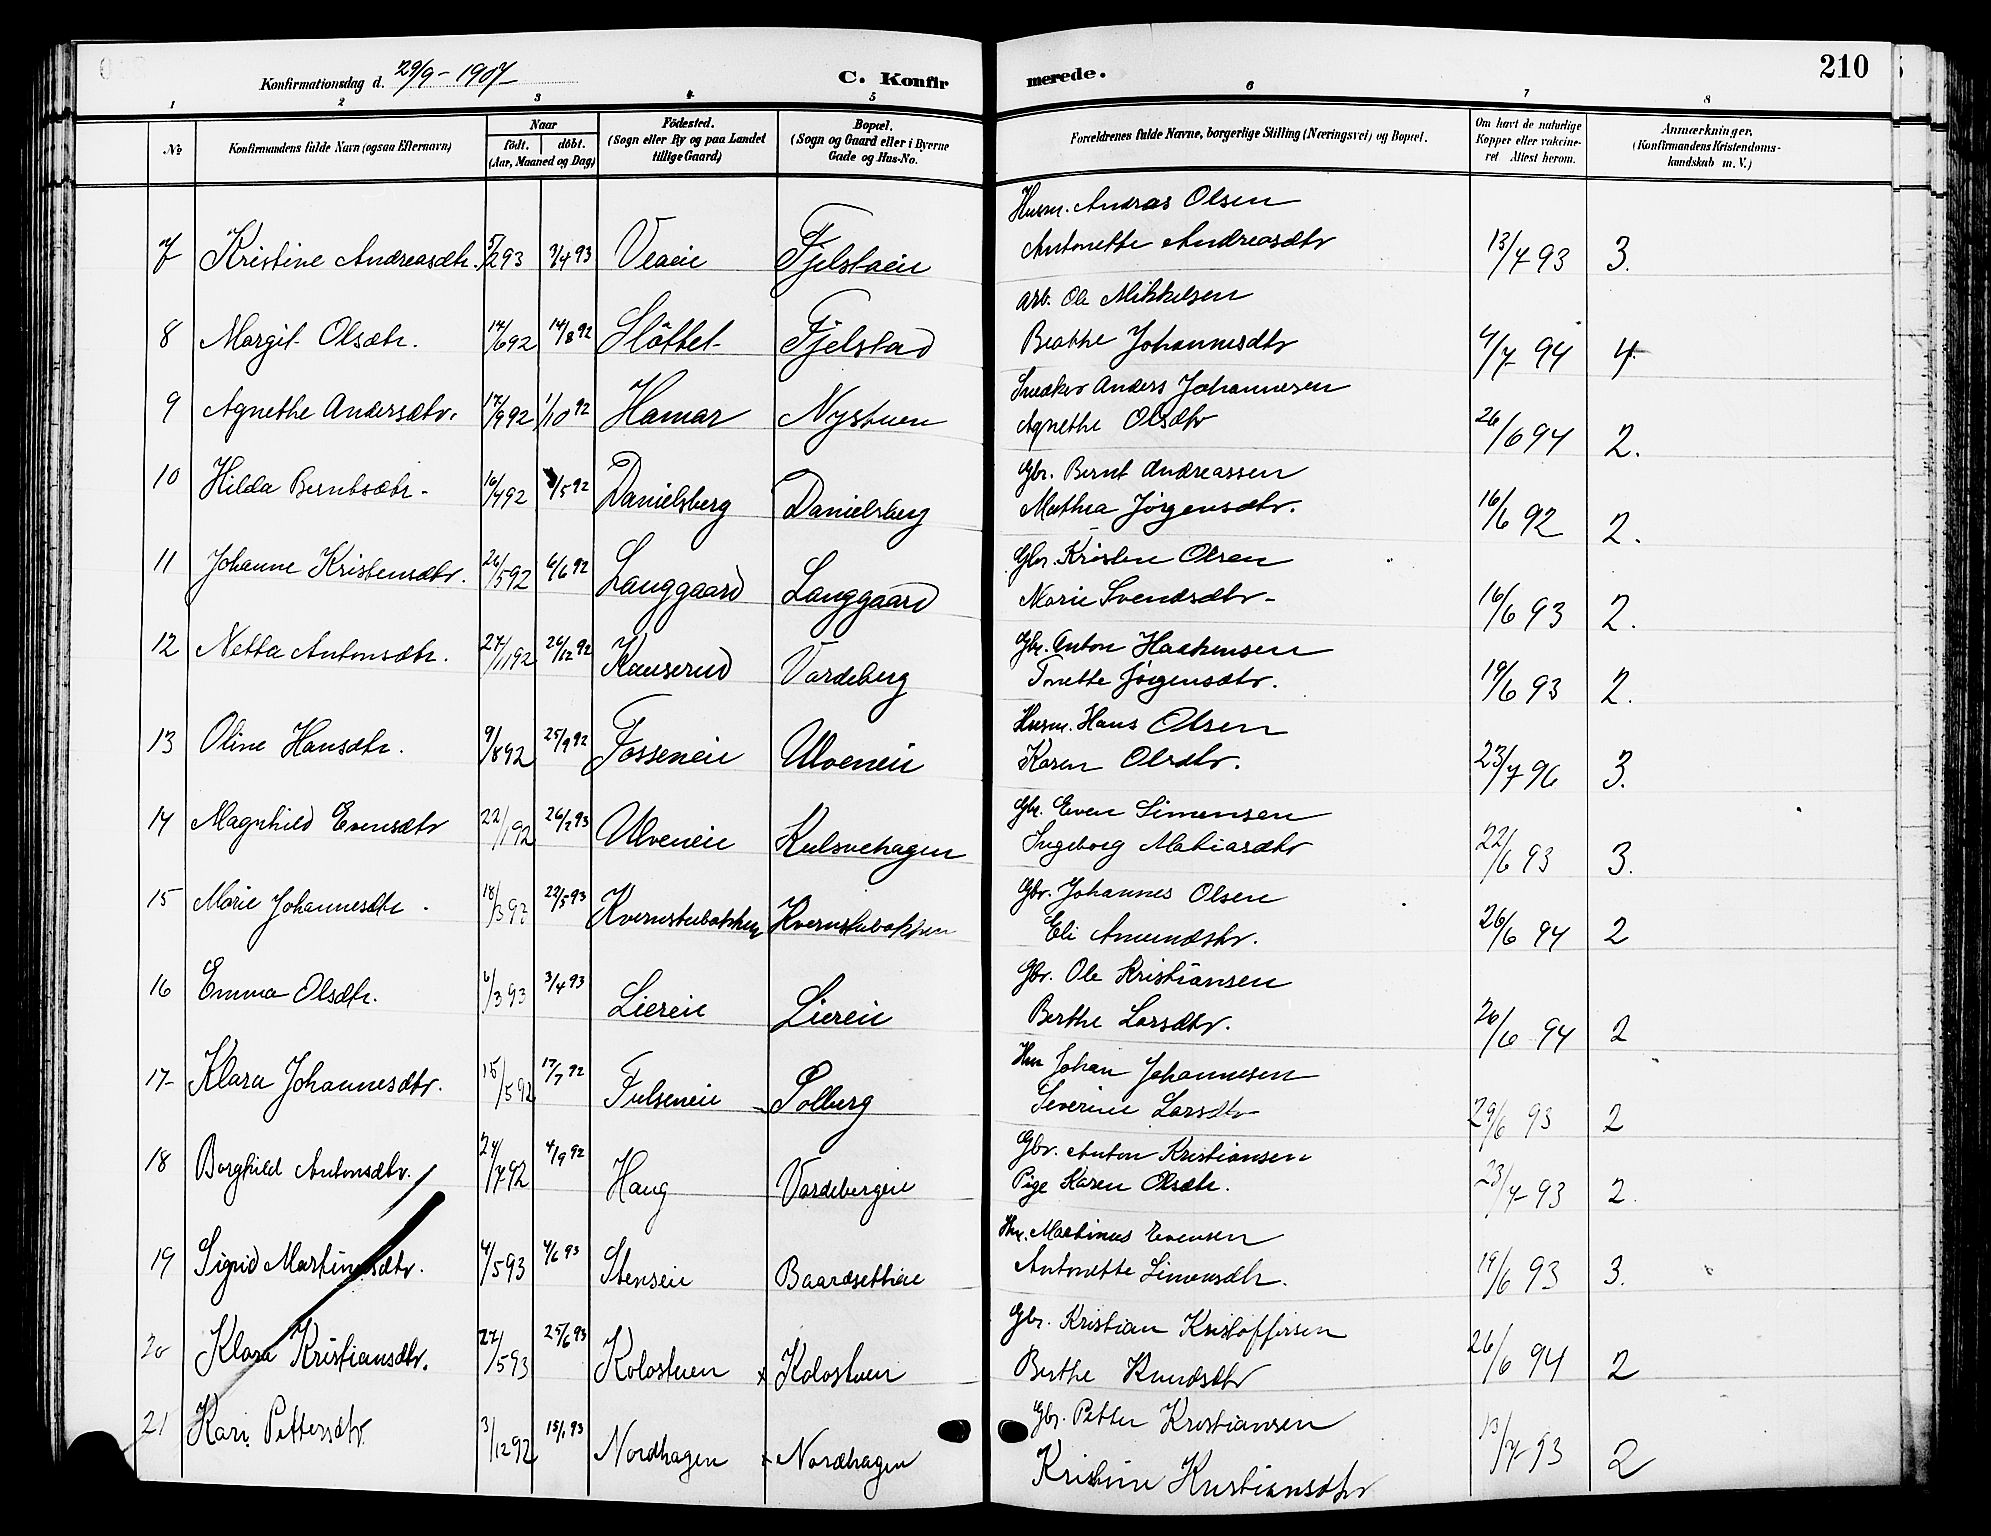 Konfirmationsdag d. 29/9 - 1907
C. Konfir
merede.
210
1 2 3 4 5 6 7 8
No Konfirmandens fulde Navn (ogsaa Efternavn) Naar født. døbt. (Aar, Maaned og Dag) Födested. (Sogn eller By og paa Landet tillige Gaard) Bopæl. (Sogn og Gaard eller i Byerne Gade og Hus-No. Forældrenes fulde Navne, borgerlige Stilling (Næringsvei) og Bopæl. Om havt de naturlige Kopper eller vakcineret Attest herom. Anmærkninger. (Konfirmandens Kristendomskundskab m. V.)
Husm. Andreas Olsen
7 Kristine Andreasdtr. 5/2 93 3/4 93 Veaeie Fjelstaeie Antonette Andreasdtr 13/7 93 3.
Arb. Ole Mikkelsen
8 Margit Olsdtr. 14/6 92 14/8 92 Slöttet Fjelstad Beathe Johannesdtr 4/7 94 4.
Snedker Anders Johannesen
9 Agnethe Andersdtr. 17/9 92 1/10 92 Hamar Nystuen Agnethe Olsdtr 26/6 94 2.
Gbr. Bernt Andreassen
10 Hilda Berntsdtr. 16/4 92 /5 92 Danielsberg Danielsberg Mathea Jørgensdtr. 16/6 92 2.
Gbr. Kristen Olsen
11 Johanne Kristensdtr. 26/5 92 6/6 92 Langgaard Langgaard Marie Svendsdtr. 16/6 93 2.
Gbr. Anton Haakensen
12 Netta Antonsdtr. 27/11 92 26/12 92 Kauserud Vardeberg Tonette Jørgensdtr. 19/6 93 2.
Husm. Hans Olsen
13 Oline Hansdtr. 9/8 92 25/9 92 Fosseneie Ulveneie Karen Olsdtr. 23/7 96 3.
Gbr. Even Simensen
14 Magnhild Evensdtr 22/1 92 26/2 93 Ulveneie Kulsvehagen Ingeborg Matiasdtr 22/6 93 3.
Gbr. Johannes Olsen
15 Marie Johannesdtr. 18/3 92 22/5 93 Kvernstubakken Kvernstubakken Eli Amundsdtr. 26/6 94 2
Gbr. Ole Kristiansen
16 Emma Olsdtr. 6/3 93 3/4 93 Liereie Liereie Berthe Larsdtr. 26/6 94 2
Hm Johan Johannesen
17 Klara Johannesdtr. 15/5 92 17/7 92 Fulseneie Solberg Severine Larsdtr 29/6 93 2
Gbr. Anton Kristiansen
18 Borghild Antonsdtr. 24/7 92 4/9 92 Haug Vardebergeie Pige Karen Olsdtr. 23/7 93 2.
Hm. Martinus Evensen
19 Sigrid Martinusdtr. 4/5 93 4/6 93 Stenseie Baardsetheie Antonette Simensdtr. 19/6 93 3.
Gbr. Kristian Kristoffersen
20 Klara Kristiansdtr. 27/5 93 25/6 93 Kolostuen x Kolostuen Berthe Knudsdtr 26/6 94 2
Gbr. Petter Kristiansen
21 Kari Pettersdtr 3/12 92 15/1 93 Nordhagen x Nordhagen Kristine Kristiansdtr 13/7 93 2